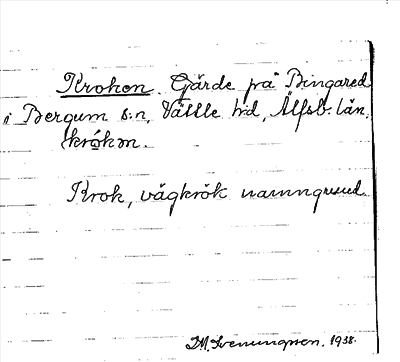 Kroken. Gärde på Bingared
i Bergum s:n, Vättle hd, Älfsb. län.
krókən.
Krok, vägkrök namngrund.
D.M. Svenungsson. 1938.